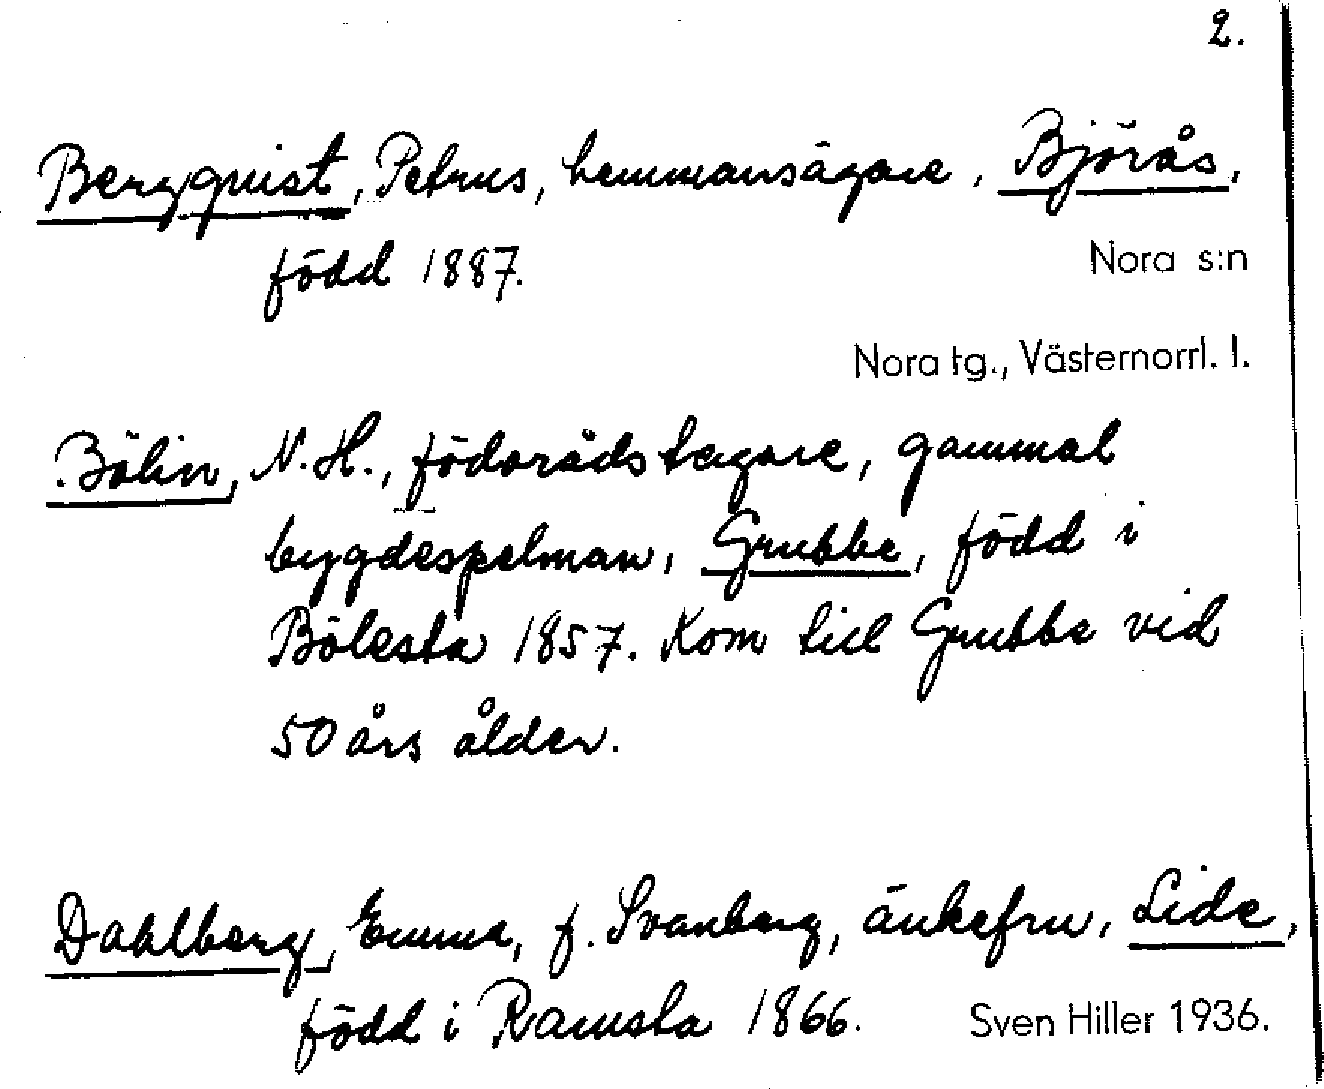 2.
Bergquist, Petrus, hemmansägare, Björås,
född 1887.
Nora s:n
Nora tg., Västernorrl. l.
Bölin, N.H., födorådstagare, gammal
bygdespelman, Grubbe, född i
Bölesta 1857. Kom till Grubbe vid
50 års ålder.
Dahlberg, Emma, f. Svanberg, änkefru, Lide,
född i Ramsta 1866.
Sven Hiller 1936.